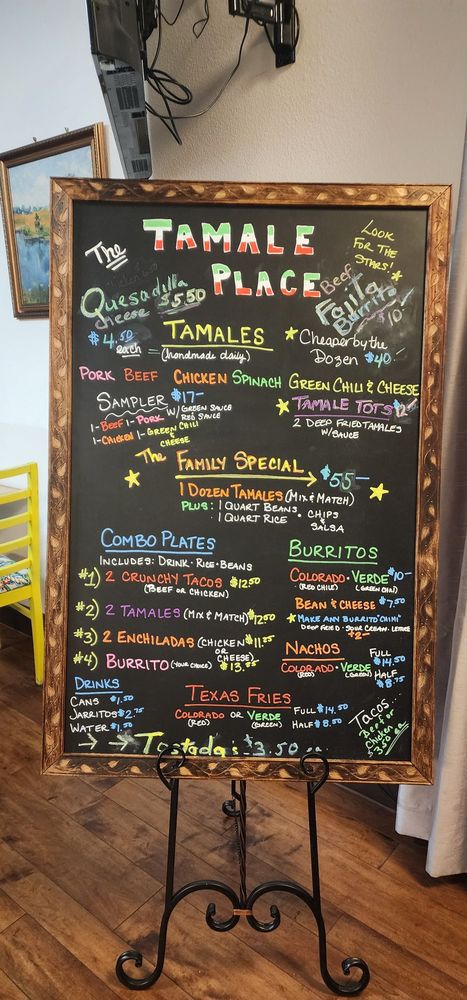 The TAMALE PLACE
LOOK FOR THE STARS!
Quesadilla
cheese $5.50
Beef Fajita Burrito $10
TAMALES
$4.50 each = (handmade daily)
Cheaper by the Dozen $40-
PORK BEEF CHICKEN SPINACH GREEN CHILI & CHEESE
SAMPLER $17-
1-BEEF 1-PORK W/ GREEN SAUCE RED SAUCE
1-CHICKEN 1-GREEN CHILI & CHEESE
TAMALE TOTS
2 DEEP FRIED TAMALES W/SAUCE
The FAMILY SPECIAL → $55-
1 DOZEN TAMALES (MIX & MATCH)
PLUS: 1 QUART BEANS
1 QUART RICE • CHIPS & SALSA
COMBO PLATES
INCLUDES: DRINK·RICE·BEANS
#1) 2 CRUNCHY TACOS $12.50
(BEEF OR CHICKEN)
#2) 2 TAMALES (MIX & MATCH) $12.50
#3) 2 ENCHILADAS (CHICKEN OR CHEESE) $11.75
#4) BURRITO (YOUR CHOICE) $13.95
BURRITOS
COLORADO·VERDE $10-
(RED CHILE) (GREEN CHILI)
BEAN & CHEESE $7.50
★ MAKE ANY BURRITO "CHIMI"
DEEP FRIED·SOUR CREAM·LETTUCE
+2-
NACHOS
COLORADO·VERDE
(RED) (GREEN)
FULL $14.50
HALF $8.75
DRINKS
CANS $1.50
JARRITOS $2.75
WATER $1.50
TEXAS FRIES
COLORADO OR VERDE
(RED) (GREEN)
FULL $14.50
HALF $8.50
Tacos...
Beef or Chicken
$3.50 ea
→ → Tostadas $3.50 ea.